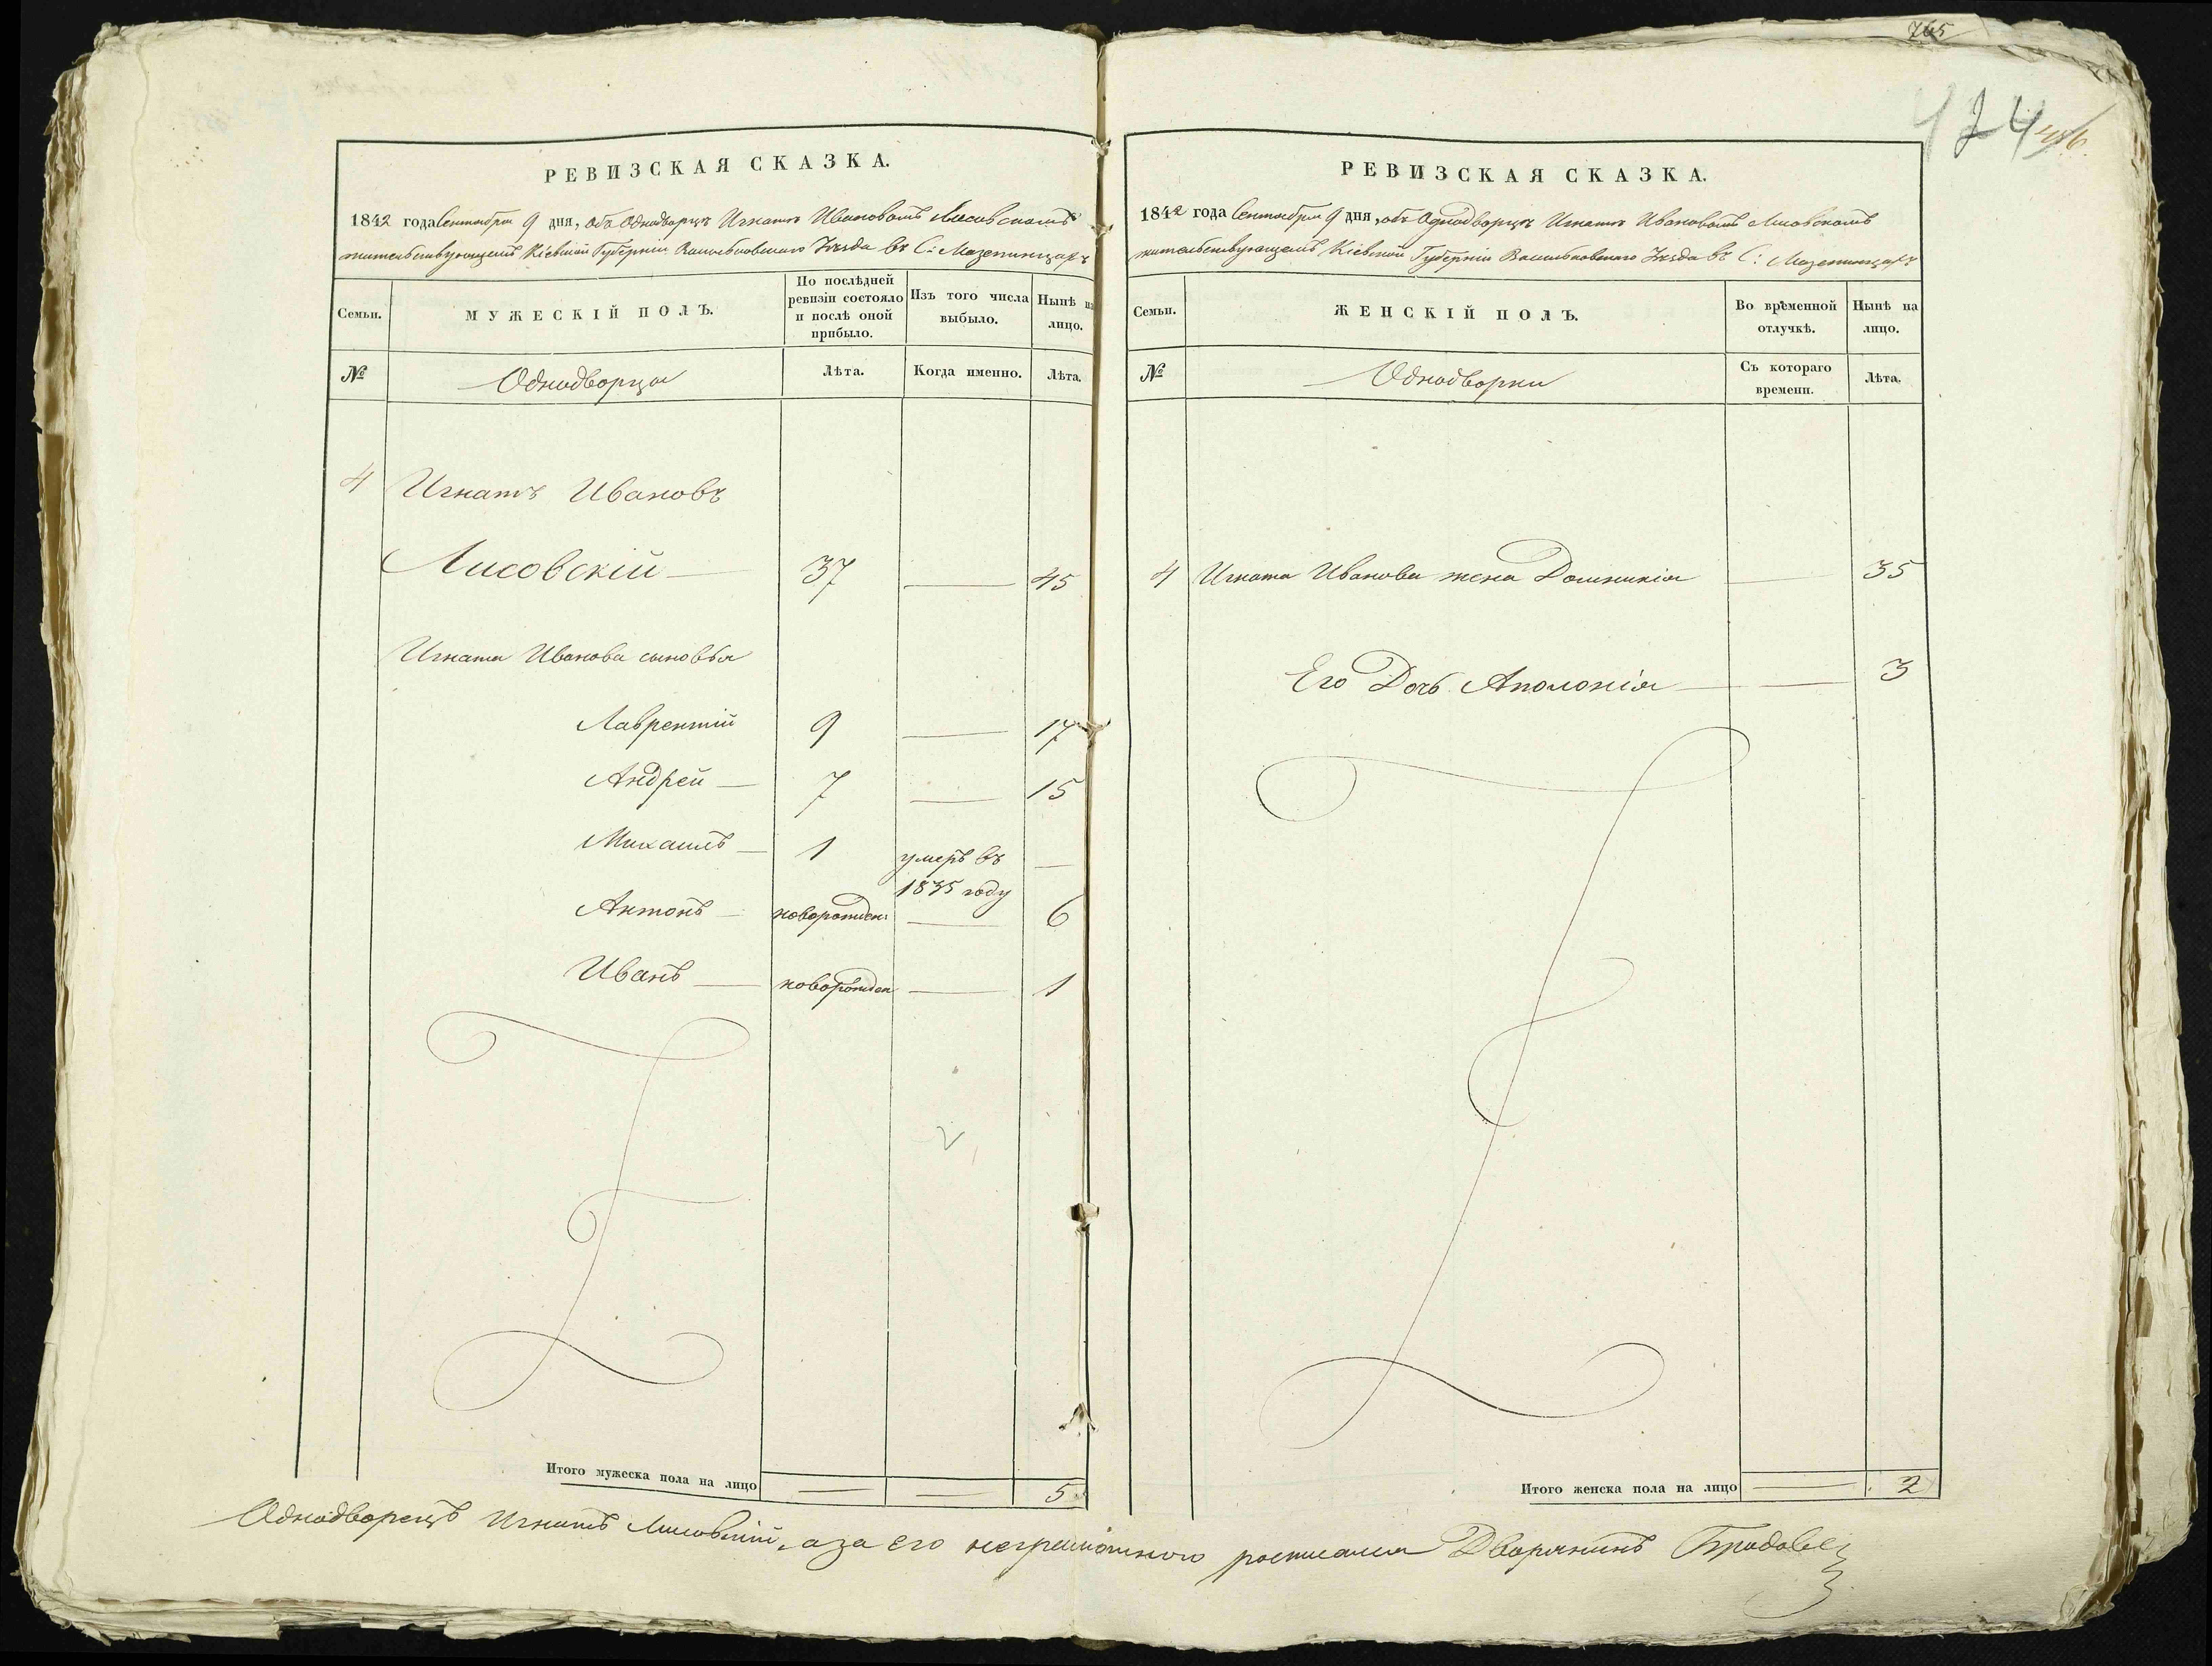 765
424
РЕВИЗСКАЯ СКАЗКА.
1842 года Сентября 9 дня, объ Однодворцѣ Игнатѣ Ивановомъ Лисовскомъ
жительствующемъ Кіевской Губерніи Васильковскаго Уѣзда въ С: Мазепинцахъ
Семьи.
МУЖЕСКІЙ ПОЛЪ.
По послѣдней ревизіи состояло и послѣ оной прибыло.
Изъ того числа выбыло.
Нынѣ на лицо.
№
Однодворцы
Лѣта.
Когда именно.
Лѣта.
4 Игнатъ Ивановъ
Лисовскій 37 45
Игната Иванова сыновья
Лаврентій 9 17
Андрей 7 15
Михаилъ 1 умеръ въ
1835 году
Антонъ новорожден: 6
Иванъ новорожден 1
Итого мужеска пола на лицо 5
РЕВИЗСКАЯ СКАЗКА.
1842 года Сентября 9 дня, объ Однодворцѣ Игнатѣ Ивановомъ Лисовскомъ
жительствующемъ Кіевской Губерніи Васильковскаго Уѣзда въ С: Мазепинцахъ
Семьи.
ЖЕНСКІЙ ПОЛЪ.
Во врѣменной отлучкѣ.
Нынѣ на лицо.
№
Однодворки
Съ котораго времени.
Лѣта.
4 Игната Иванова жена Домникія 35
Его Дочь Аполонія 3
Итого женска пола на лицо 2
Однодворецъ Игнатъ Лисовскій, а за его неграмотного росписался Дворянинъ